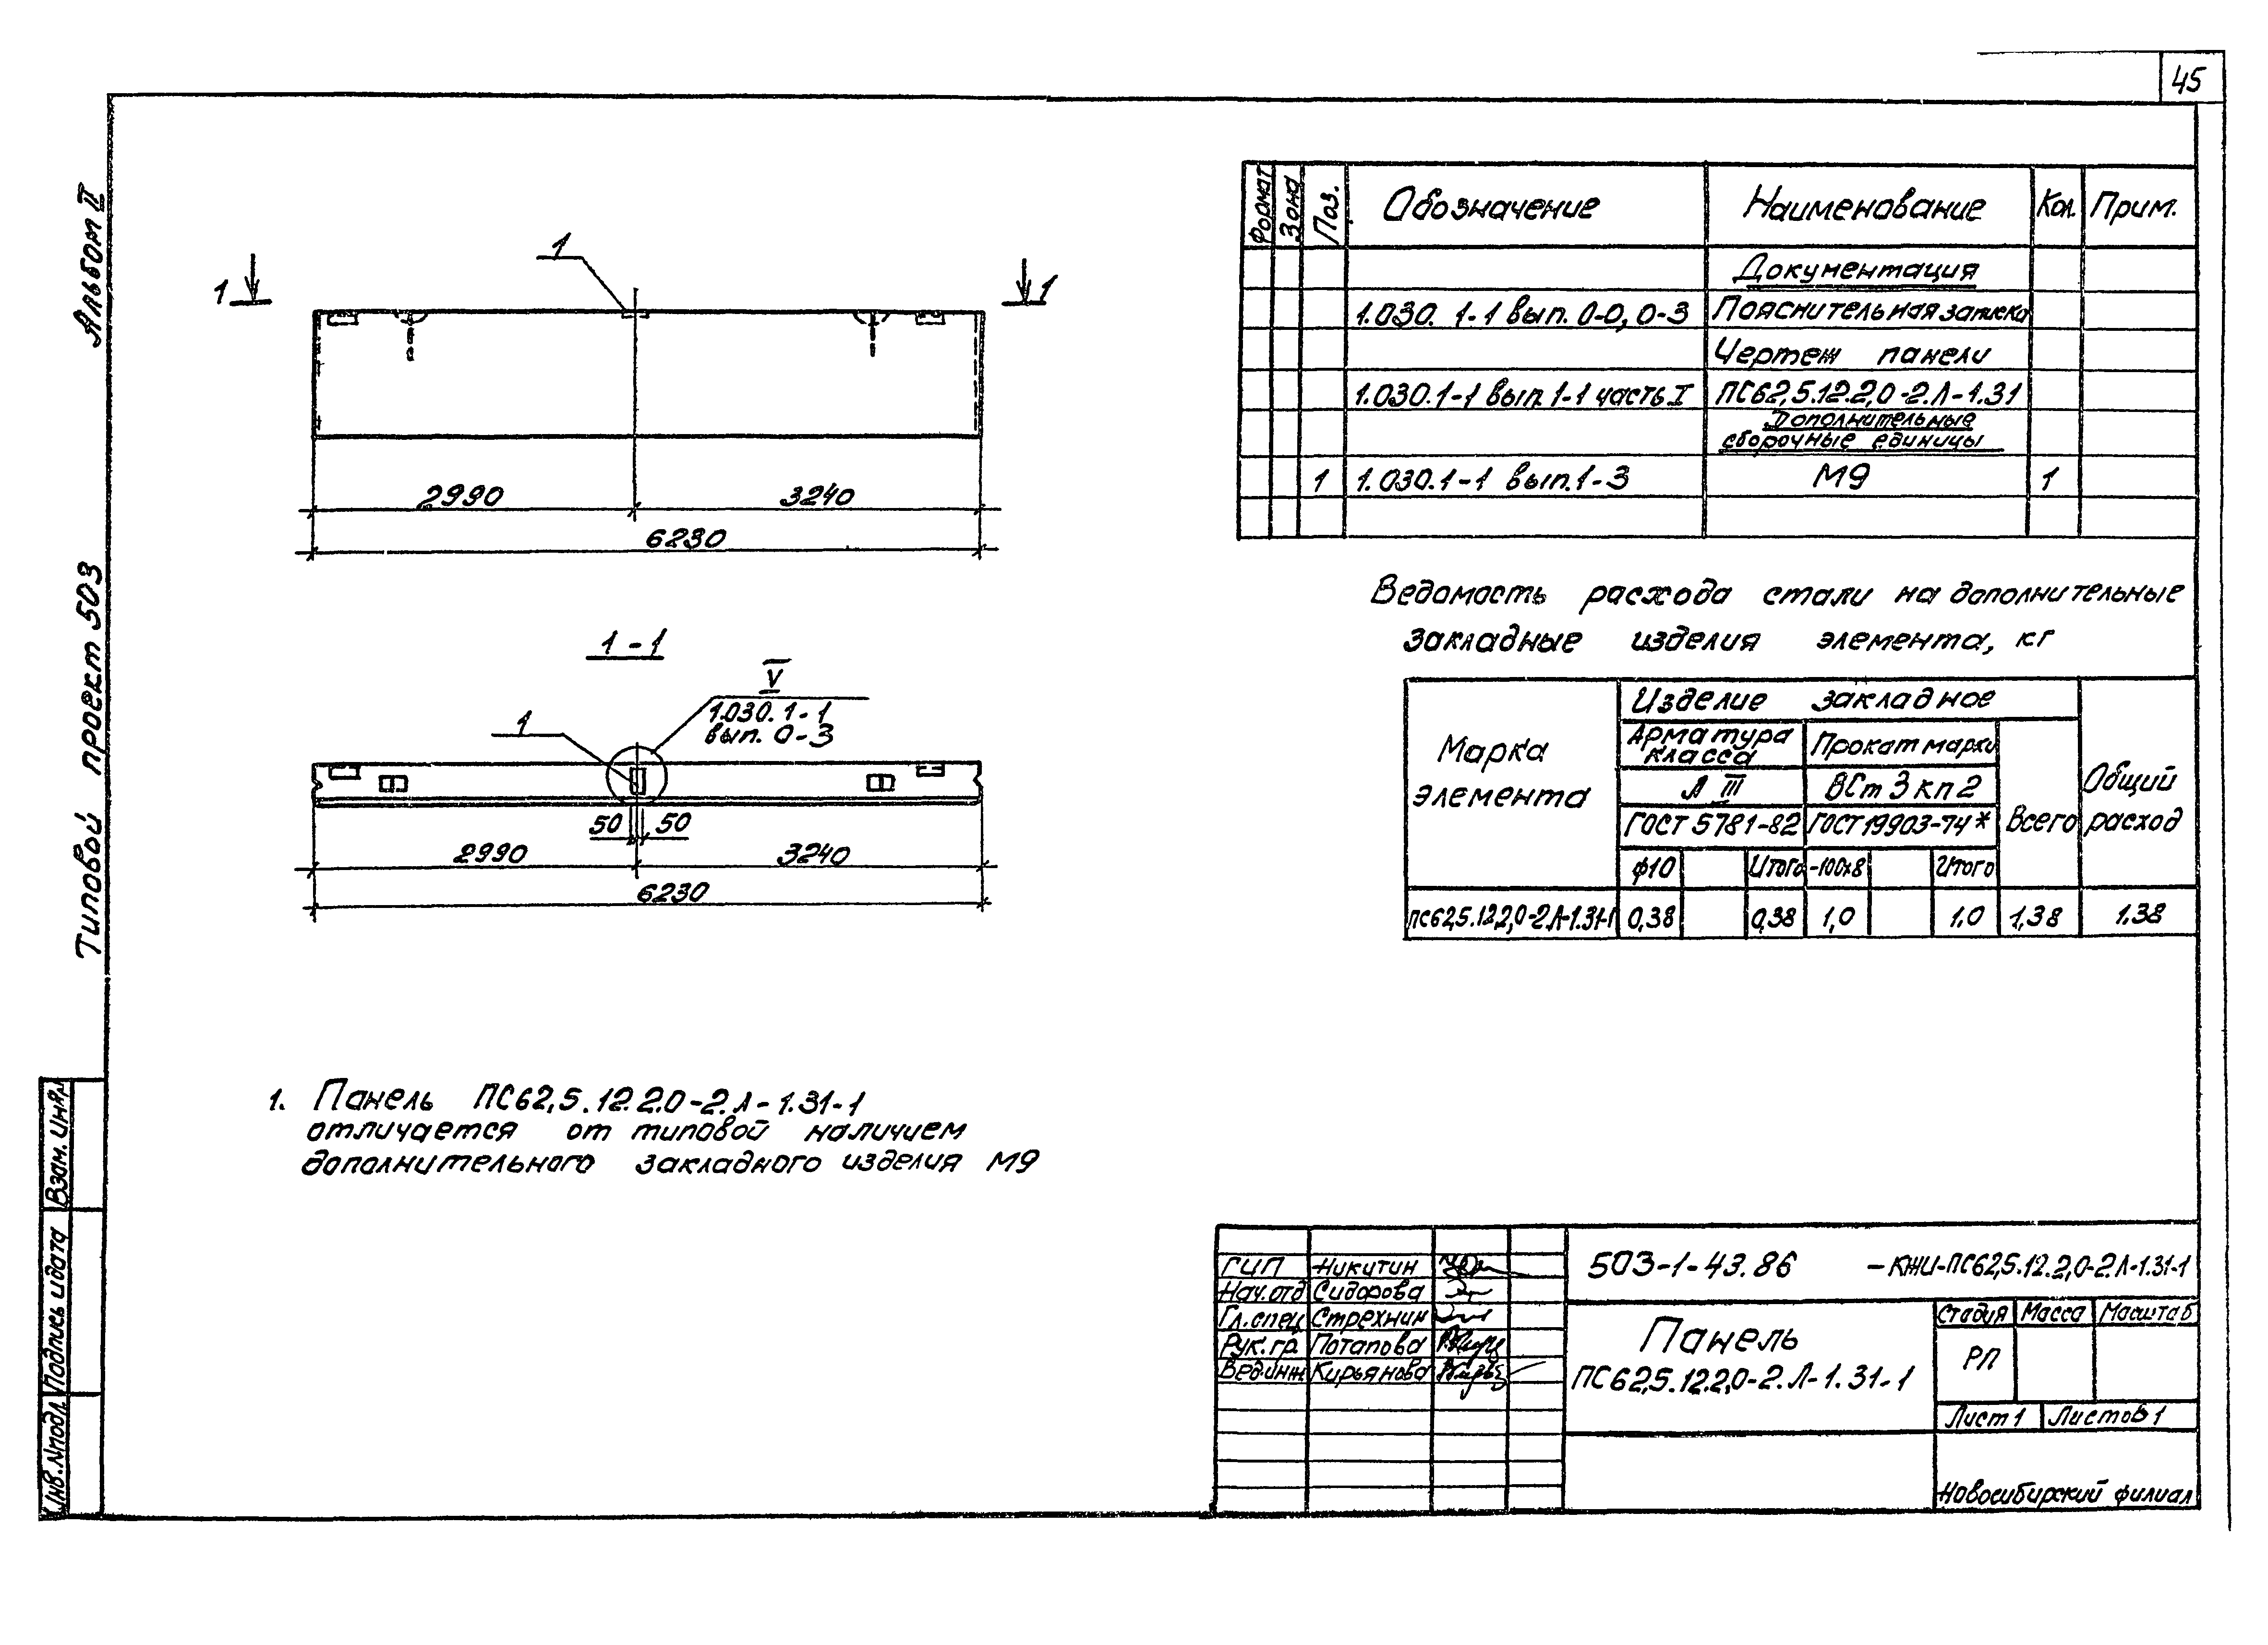 45
Альбом II
Типовой проект 503
1
1
1
2990
3240
6230
1-1
V
1.030.1-1
вып. 0-3
1
50
50
2990
3240
6230
1. Панель ПС62,5.12.2.0-2.Л-1.31-1
отличается от типовой наличием
дополнительного закладного изделия М9
Формат
Зона
Поз.
Обозначение
Наименование
Кол.
Прим.
Документация
1.030.1-1 вып. 0-0, 0-3
Пояснительная записка
Чертеж панели
1.030.1-1 вып.1-1 часть I
ПС62,5.12.2,0-2.Л-1.31
Дополнительные
сборочные единицы
1
1.030.1-1 вып.1-3
М9
1
Ведомость расхода стали на дополнительные
закладные изделия элемента, кг
Марка
элемента
Изделие закладное
Арматура
класса
Прокат марки
А III
ВСт 3 кп 2
ГОСТ 5781-82
ГОСТ 19903-74*
Всего
Общий
расход
ф10
Итого
-100х8
Итого
ПС62,5.12.2,0-2.Л-1.31-1
0,38
0,38
1,0
1.0
1,38
1.38
Взам. инв.№
Подпись и дата
Инв.№подл.
ГИП Никитин
Нач.отд Сидорова
Гл.спец Стрехнин
Рук.гр. Потапова
Вед.инж Кирьянова
503-1-43.86 -КЖИ-ПС62,5.12.2,0-2.Л-1.31-1
Панель
ПС62,5.12.2,0-2.Л-1.31-1
Стадия
Масса
Масштаб
РП
Лист 1
Листов 1
Новосибирский филиал